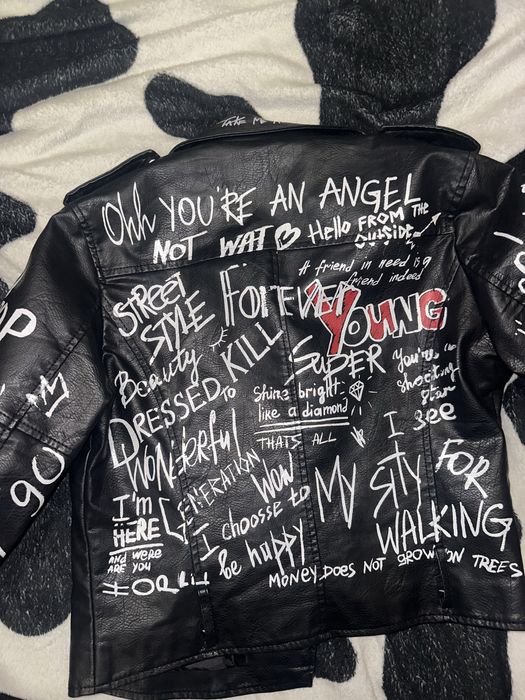 TAKE ME
Ohh YOU'RE AN ANGEL
NOT WAT
Hello FROM THE
OUTSIDE
A friend in need is a
friend indeed
STREET
STYLE
FOREVER
YOUNG
Beauty
KILL
SUPER
DRESSED TO
Shine bright
like a diamond
THATS ALL
You're
shooting
star
I
see
WONderful
GENERATION
WOW
MY STY
FOR
WALKING
I'm
HERE
AND WERE
ARE YOU
I choosse to
be happy
MONEY DOES NOT GROW ON TREES
GO